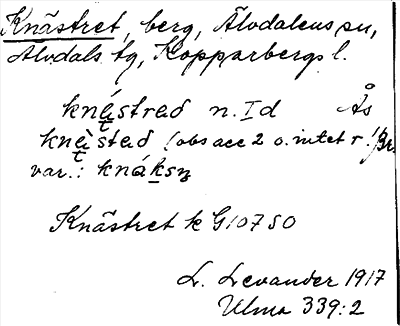 Knästret, berg, Älvdalens sn,
Älvdals tg, Kopparbergs l.
knä́strad n. Id Ås
knä̀stad (obs acc 2 o. intet r! Br.
var.: knáksn
Knästret k G10750
L. Levander 1917
Ulma 339:2